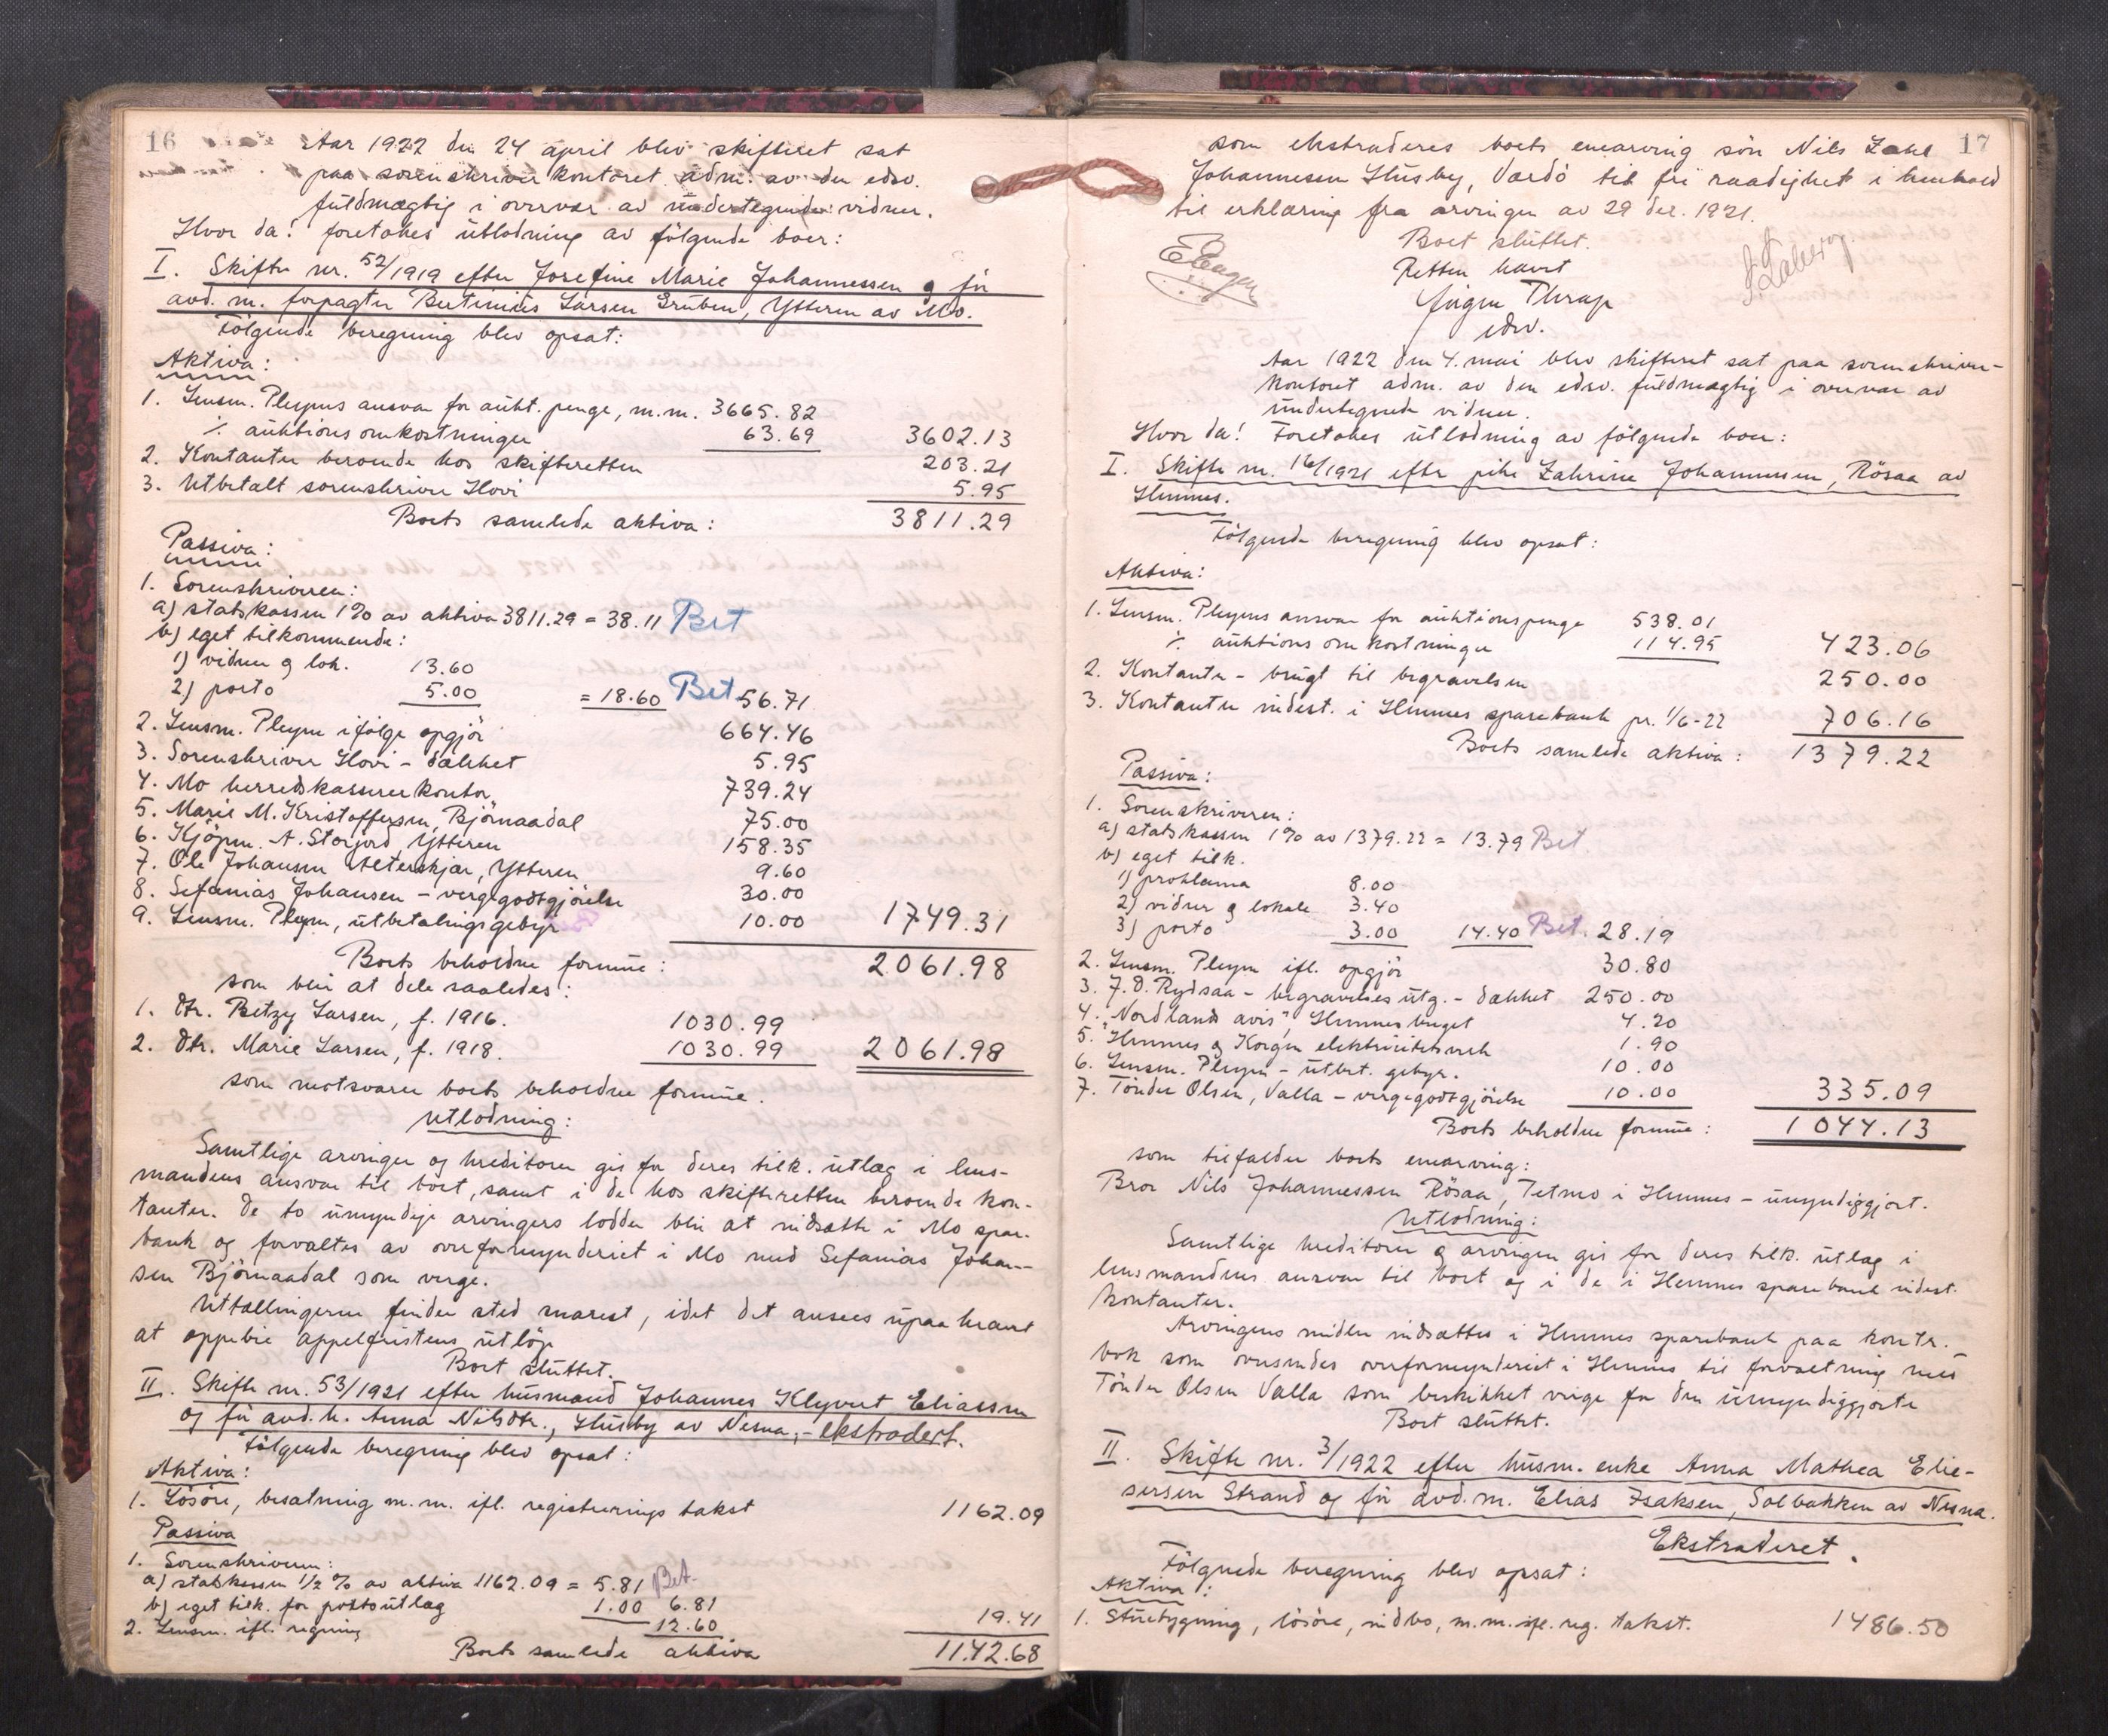 16
Aar 1922 den 24 april blev skifteret sat
paa sorenskriverkontoret adm. av den edsv.
fuldmægtig i overvær av undertegnede vidner.
Hvor da! foretakes utlodning av følgende boer:
I. Skifte nr. 52/1919 efter Josefine Marie Johannessen og før
avd. m. forpagter Bertinius Larsen Gruben, Ytteren av Mo.
Følgende beregning blev opsat:
Aktiva:
1. Lensm. Pleyms ansvar for aukt. penge, m.m. 3665.82
÷ auktionsomkostninger 63.69 3602.13
2. Kontanter beroende hos skifteretten 203.21
3. Utbetalt sorenskriver Hovi 5.95
Boets samlede aktiva: 3811.29
Passiva:
1. Sorenskriveren:
a) statskassen 1% av aktiva 3811.29 = 38.11 Bet
b) eget tilkommende:
1) vidner og lok. 13.60
2) porto 5.00 = 18.60 Bet 56.71
2. Lensm. Pleym ifølge opgjør 664.46
3. Sorenskriver Hovi - dækket 5.95
4. Mo herredskassererkontor 739.24
5. Marie M. Kristoffersen, Bjørnaadal 75.00
6. Kjøpm. A. Storjord, Ytteren 158.35
7. Ole Johansen Alterskjær, Ytteren 9.60
8. Sefanias Johansen - vergegodtgjørelse 30.00
9. Lensm. Pleym, utbetalingsgebyr 10.00 1749.31
Boets beholdne formue: 2061.98
som blir at dele saaledes:
1. dtr. Betzy Larsen, f. 1916. 1030.99
2. dtr. Marie Larsen, f. 1918. 1030.99 2061.98
som motsvarer boets beholdne formue.
Utlodning:
Samtlige arvinger og kreditorer gis for deres tilk. utlæg i lens-
mandens ansvar til boet, samt i de hos skifteretten beroende kon-
tanter. De to umyndige arvingers lodder blir at indsætte i Mo spar.
bank og forvaltes av overformynderiet i Mo med Sefanias Johan-
sen Bjørnaadal som verge.
Uttællingerne finder sted snarest, idet det ansees upaakrævet
at oppebie appelfristens utløp.
Boet sluttet.
II. Skifte nr. 53/1921 efter husmand Johannes Klyvert Eliassen
og før avd. h. Anna Nilsdtr., Husby av Nesna, - ekstradert.
Følgende beregning blev opsat:
Aktiva:
1. Løsøre, besætning m.m. ifl. registreringstakst 1162.09
Passiva
1. Sorenskriveren:
a) statskassen 1/2 % av aktiva 1162.09 = 5.81 Bet.
b) eget tilk. for portoutlæg 1.00 6.81
2. Lensm. ifl. regning 12.60 19.41
Boets samlede aktiva 1142.68
17
som ekstraderes boets enearving søn Nils Zahl
Johannessen Husby, Vardö til fri raadighet i henhold
til erklæring fra arvingen av 29 des. 1921.
Boet sluttet.
Retten hævet
Jürgen Thrap
edsv.
Aar 1922 den 4. mai blev skifteret sat paa sorenskriver-
kontoret adm. av den edsv. fuldmægtig i overvær av
undertegnede vidner.
Hvor da! Foretakes utlodning av følgende boer:
I. Skifte nr. 16/1921 efter pike Zahrine Johannessen, Rösaa av
Hemnes.
Følgende beregning blev opsat:
Aktiva:
1. Lensm. Pleyms ansvar for auktionspenge 538.01
÷ auktionsomkostninger 114.95 423.06
2. Kontanter - brugt til begravelsen 250.00
3. Kontanter indest. i Hemnes sparebank pr. 1/6-22 706.16
Boets samlede aktiva: 1379.22
Passiva:
1. Sorenskriveren:
a) statskassen 1% av 1379.22 = 13.79 Bet.
b) eget tilk.
1) proklama 8.00
2) vidner og lokale 3.40
3) porto 3.00 14.40 Bet. 28.19
2. Lensm. Pleym ifl. opgjør 30.80
3. J.O. Rydsaa - begravelsesutg. - dækket 250.00
4. "Nordlands avis", Hemnesberget 4.20
5. Hemnes og Korgen elektricitetsverk 1.90
6. Lensm. Pleym - utbet. gebyr. 10.00
7. Tönder Olsen, Valla - vergegodtgjørelse 10.00 335.09
Boets beholdne formue: 1044.13
som tilfalder boets enearving:
Bror Nils Johannessen Rösaa, Tetmo i Hemnes - umyndiggjort.
Utlodning:
Samtlige kreditorer og arvingen gis for deres tilk. utlæg i
lensmandens ansvar til boet og i de i Hemnes sparebank indest.
kontanter.
Arvingens midler indsættes i Hemnes sparebank paa kontr.
bok som oversendes overformynderiet i Hemnes til forvaltning med
Tönder Olsen Valla som beskikket verge for den umyndiggjorte
Boet sluttet.
II. Skifte nr. 3/1922 efter husm. enke Anna Mathea Elie-
sersen Strand og før avd. m. Elias Isaksen, Solbakken av Nesna.
Ekstraderet.
Følgnede beregning blev opsat:
Aktiva:
1. Stuebygning, løsøre, indbo, m.m. ifl. reg. takst. 1486.50